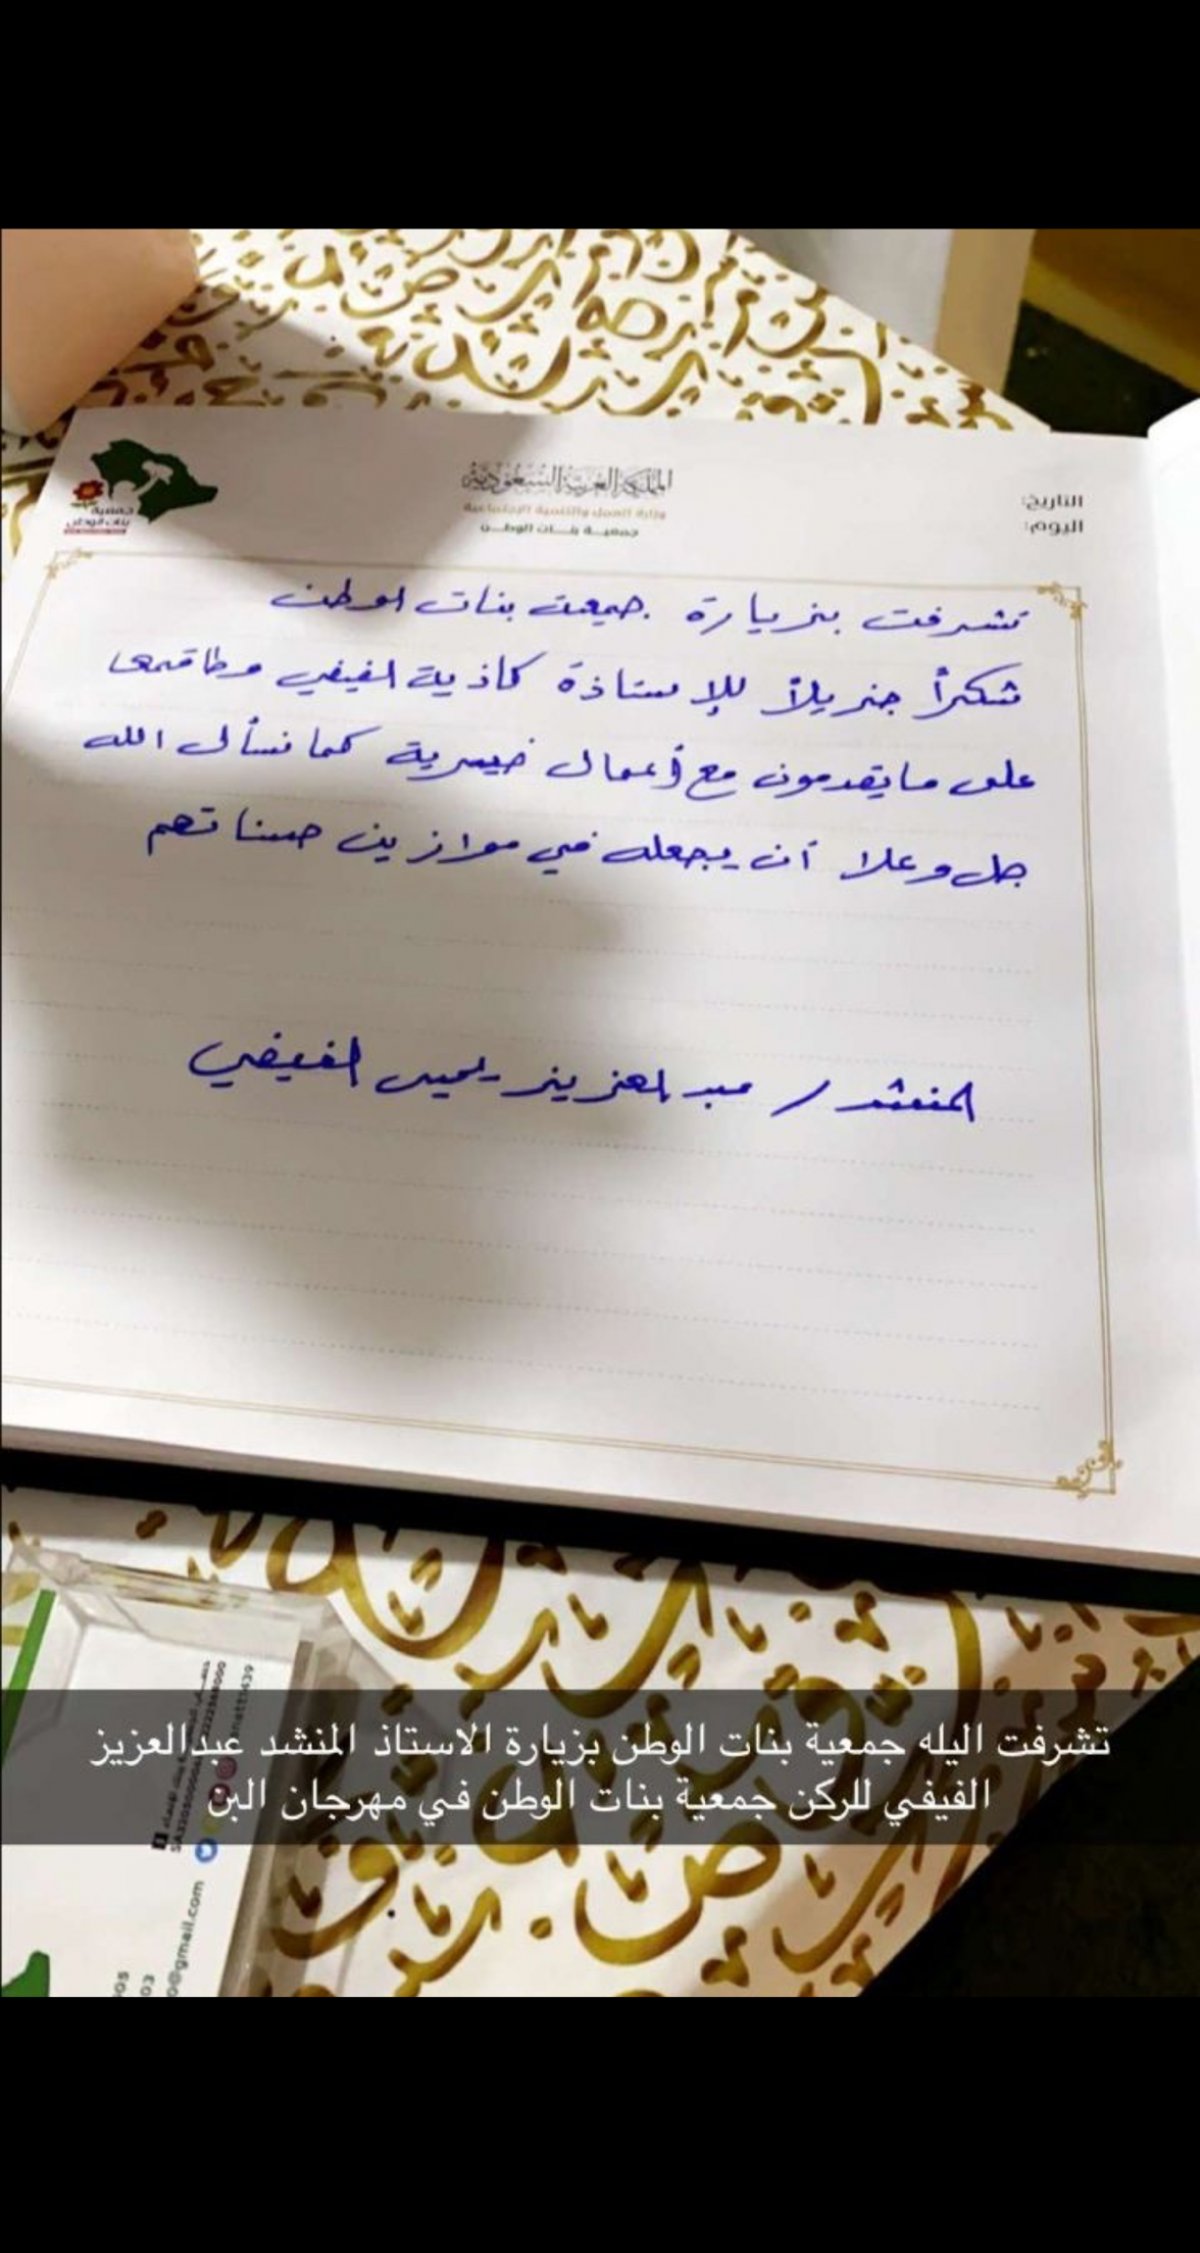 المملكة العربية السعودية
وزارة العمل والتنمية الإجتماعية
جمعية بنات الوطن
التاريخ:
اليوم:
جمعية
بنات الوطن
تشرفت بزيارة جمعية بنات الوطن
شكراً جزيلاً للإستاذة كاذية الفيفي وطاقمها
على ما يقدمون مع أعمال خيرية كما نسأل الله
جل وعلا أن يجعله في موازين حسناتهم
المنشد / عبد العزيز يحيى الفيفي
تشرفت اليله جمعية بنات الوطن بزيارة الاستاذ المنشد عبدالعزيز
الفيفي للركن جمعية بنات الوطن في مهرجان البن
@gmail.com